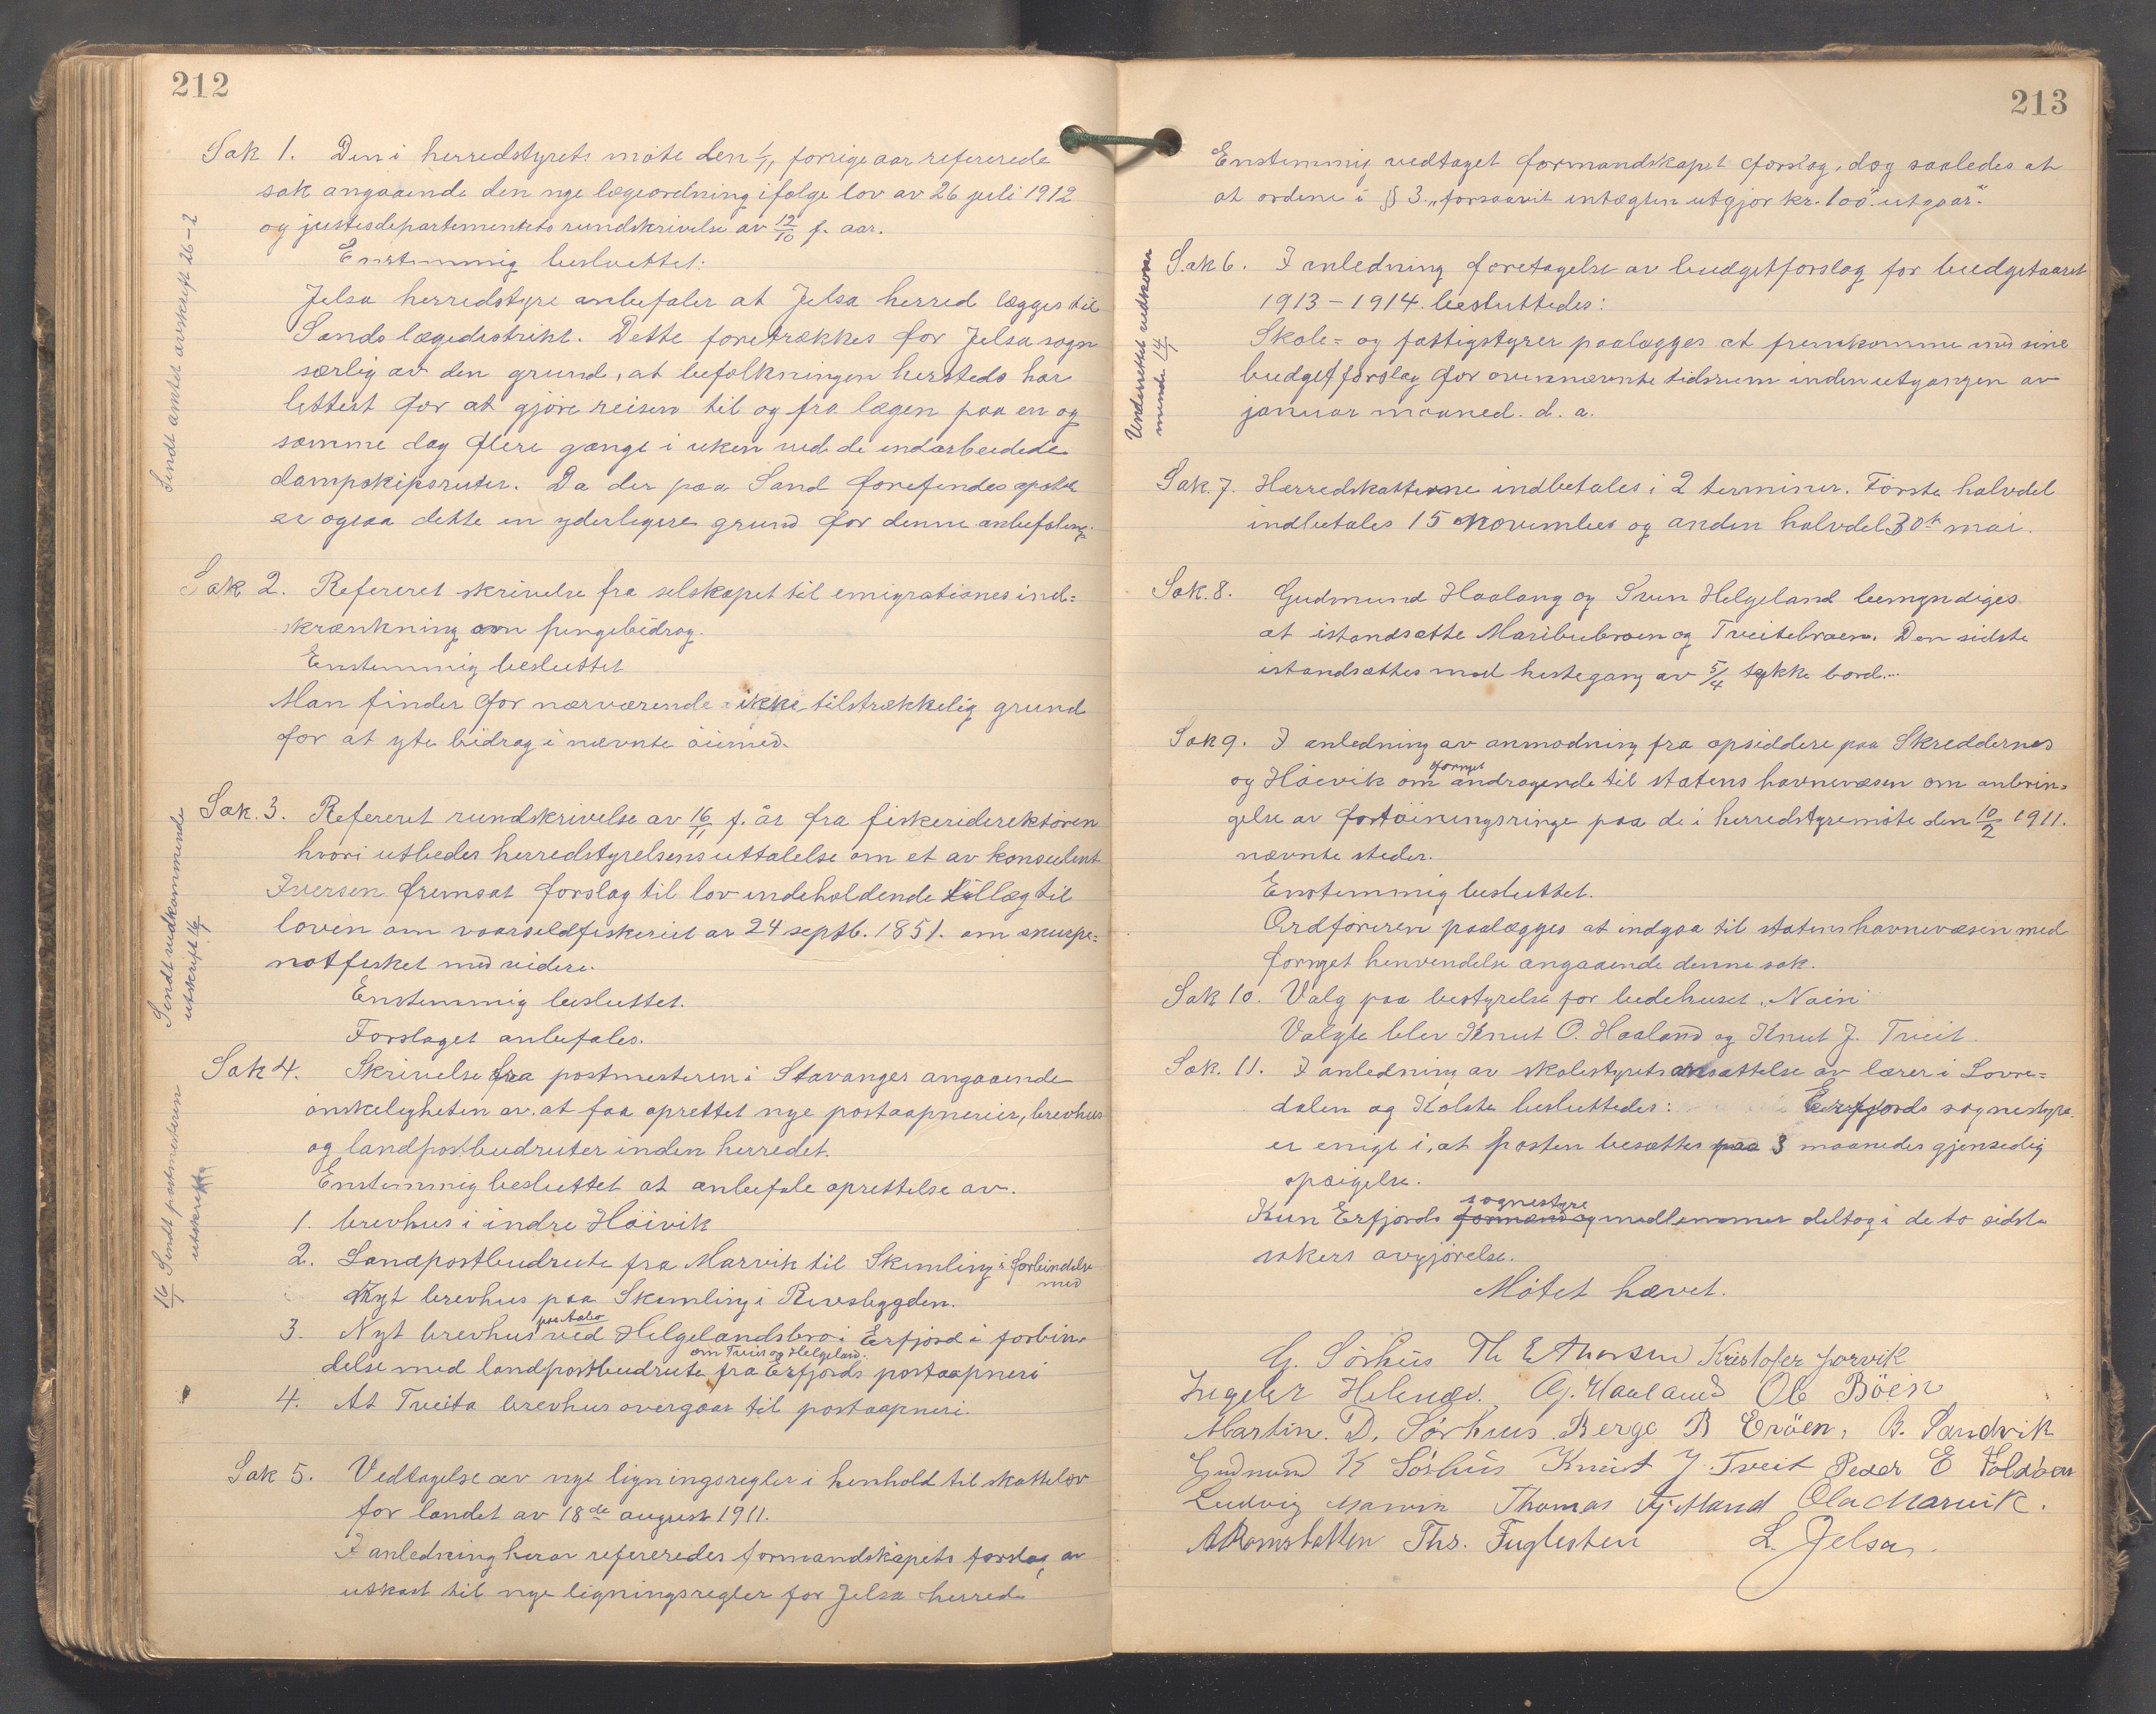 212
Sak 1. Den i herredstyrets møte den 1/11 forrige aar refererede
sak angaaende den nye lægeordning ifølge lov av 26 juli 1912
og justisdepartementets rundskrivelse av 12/10 f. aar.
Enstemmig besluttet:
Jelsa herredstyre anbefaler at Jelsa herred lægges til
Sands lægedistrikt. Dette foretrækkes for Jelsa sogn
særlig av den grund, at befolkningen hersteds har
lettest for at gjøre reisen til og fra lægen paa en og
samme dag flere gange i uken ved de indarbeidede
dampskipsruter. Da der paa Sand forefindes apotek
er ogsaa dette en yderligere grund for denne anbefaling.
Sendt amtet avskrift 26-2
Sak 2. Refereret skrivelse fra selskapet til emigrationes ind=
skrænkning om pengebidrag.
Enstemmig besluttet
Man finder for nærværende ikke tilstrækkelig grund
for at yte bidrag i nævnte øiemed.
Sak. 3. Refereret rundskrivelse av 16/11 f. år fra fiskeridirektøren
hvori utbedes herredstyrelsens uttalelse om et av konsulent
Iversen fremsat forslag til lov indeholdende tillæg til
loven om vaarsildfiskeriet av 24 septb. 1851. om snurpe=
notfisket med videre.
Enstemmig besluttet.
Forslaget anbefales.
Sendt vedkommende
utskrift 16/1
Sak 4. Skrivelse fra postmesteren i Stavanger angaaende
ønskeligheten av at faa oprettet nye postaapnerier, brevhus
og landpostbudruter inden herredet.
Enstemmig besluttet at anbefale oprettelse av.
1. brevhus i indre Høivik
2. Landpostbudrute fra Marvik til Skimling i forbindelse
med
Nyt brevhus paa Skimling i Revsbygden.
3. Nyt brevhus ved Helgelandsbro i Erfjord i forbin=
om Treit og Helgeland.
delse med landpostbudrute fra Erfjords postaapneri
4. At Tveita brevhus overgaar til postaapneri.
16/1 Sendt postmesteren
utskrift
Sak 5. Vedtagelse av nye ligningsregler i henhold til skattelov
for landet av 18de august 1911.
I anledning herav refereredes formandskapets forslag av
utkast til nye ligningsregler for Jelsa herred
213
Enstemmig vedtaget formandskapet forslag, dog saaledes at
at ordene i § 3. „forsaavit intægten utgjør kr. 100" utgaar.
Sak 6. I anledning foretagelse av budgetforslag for budgetaaret
1913-1914. besluttedes:
Skole= og fattigstyrer paalægges at fremkomme med sine
budgetforslag for ovennævnte tidsrum inden utgangen av
januar maaned. d. a.
Underrettet vedkom
mende 14/1
Sak. 7. Herredskatterne indbetales i 2 terminer. Første halvdel
indbetales 15 november og anden halvdel 30te mai.
Sak. 8. Gudmund Haalang og Sven Helgeland bemyndiges
at istandsætte Maribubroen og Tveitebroen. Den sidste
istandsættes med hestegang av 5/4 tykke bord...
Sak 9. I anledning av anmodning fra opsiddere paa Skreddernes
fornyet
og Høivik om andragende til statens havnevæsen om anbrin=
gelse av fortøiningsringe paa de i herredstyremøte den 10/2 1911.
nævnte steder.
Enstemmig besluttet.
Ordføreren paalægges at indgaa til statens havnevæsen med
fornyet henvendelse angaaende denne sak.
Sak 10. Valg paa bestyrelse for bedehuset „Nain"
Valgte blev Knut O. Haaland og Knut J. Tveit.
Sak. 11. I anledning av skolestyrets ansættelse av lærer i Lovre=
dalen og Kolste besluttedes: Erfjords sognestyre
er enigt i, at posten besættes paa 3 maaneders gjensedig
opsigelse.
sognestyre
Kun Erfjords formænd og medlemmer deltog i de to sidste
sakers avgjørelse.
Møtet hævet.
G. Sørhus Th E Thorsen Kristofer Jorvik
Ingebr Helgeland. Aj. Haaland Ole Böen
Martin. D. Sørhus Berge B Erøen, B. Sandvik
Gudmund K Sørhus Knut J. Tveit Peder E Foldøen
Ludvig Marvik Thomas Fjetland Ola Marvik.
A Ramstatten Ths. Fuglesten L. Jelsa.